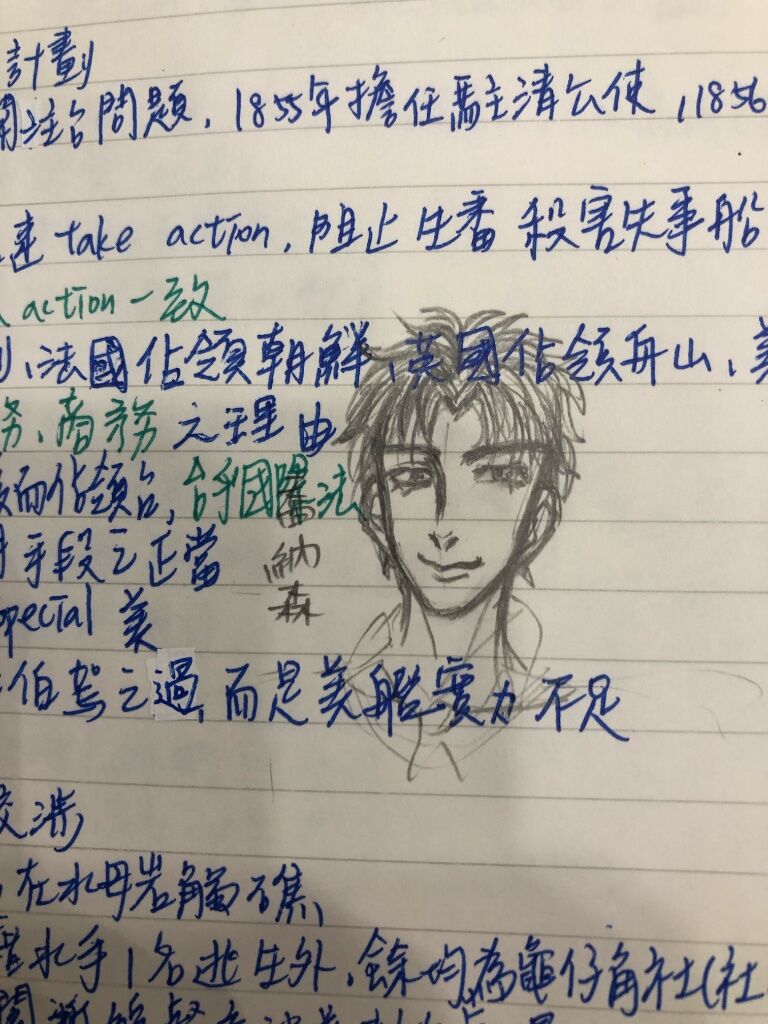 計劃
關注台問題，1855年擔任駐清公使，1856
速 take action，阻止生番殺害失事船
action 一致
，法國佔領朝鮮，英國佔領舟山，美
務、商務之理由
而佔領台，台手國際法
手段之正當
special 美
伯駕之過，而是美艦實力不足
喬納森
交涉
在水母岩觸礁，
水手1名逃生外，餘均為龜仔角社(社